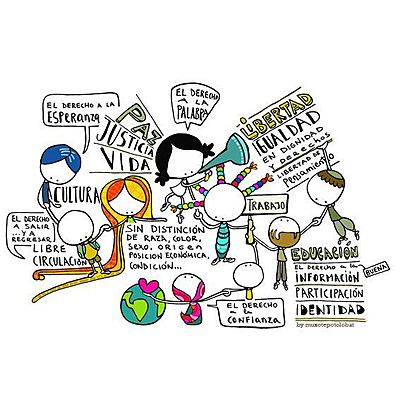 EL DERECHO A LA
ESPERANZA
PAZ
JUSTICIA
VIDA
EL DERECHO
A LA
PALABRA
LIBERTAD
IGUALDAD
EN DIGNIDAD
Y DERECHOS
LIBERTAD DE
PENSAMIENTO
CULTURA
EL DERECHO
A SALIR
...Y A
REGRESAR
LIBRE
CIRCULACIÓN
SIN DISTINCIÓN
DE RAZA, COLOR,
SEXO, ORIGEN
POSICIÓN ECONÓMICA,
CONDICIÓN...
TRABAJO
EDUCACIÓN
EL DERECHO A LA
BUENA
INFORMACIÓN
PARTICIPACIÓN
IDENTIDAD
EL DERECHO
A LA
CONFIANZA
by muxotepotolobat